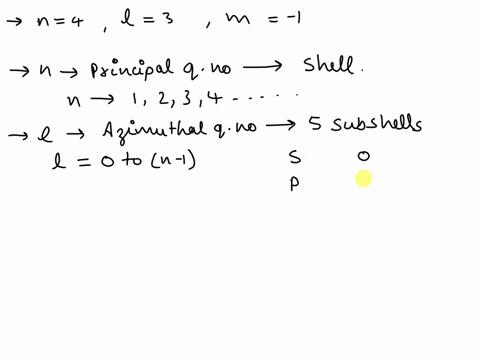 → n=4 , l=3 , m = -1
→ n → Principal q.no → Shell.
n → 1, 2, 3, 4 - - - - - .
→ l → Azimuthal q.no → 5 subshells
l = 0 to (n-1) S 0
P